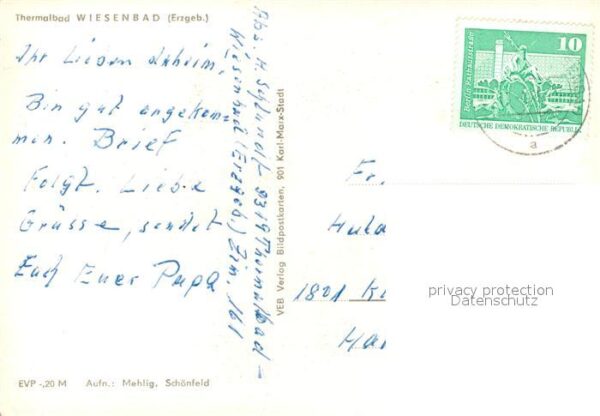 Thermalbad WIESENBAD (Erzgeb.)
Ihr Lieben daheim,
Bin gut angekom-
men. Brief
folgt. Liebe
Grüsse, sendet
Euch Euer Papa
EVP -,20 M Aufn.: Mehlig, Schönfeld
Abs. H. 9319 Thermalbad -
Wiesenbad (Erzgeb.) Zim. 161
VEB Verlag Bildpostkarten, 901 Karl-Marx-Stadt
10
Berlin, Rathausstraße
DEUTSCHE DEMOKRATISCHE REPUBLIK
a
Fr.
Hula
1801 Ki
Ha
privacy protection
Datenschutz